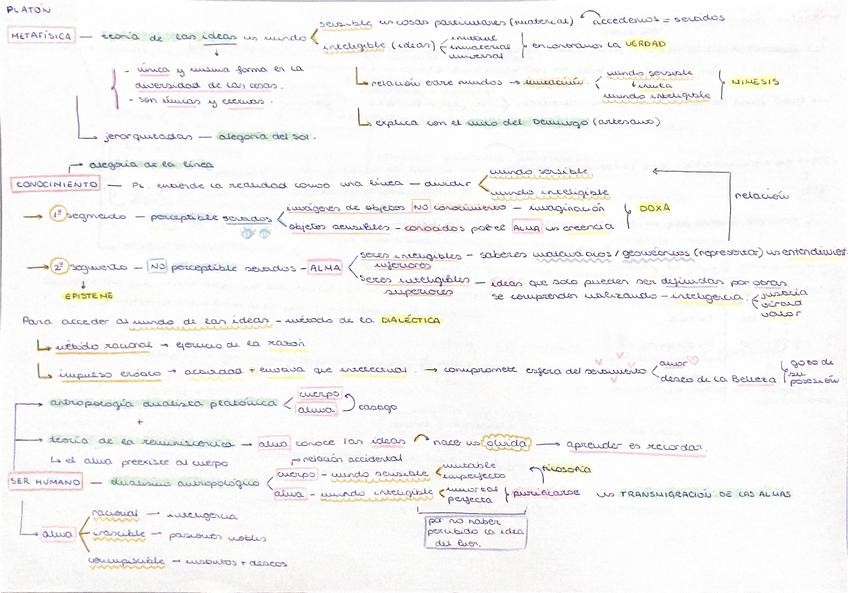 PLATÓN
METAFÍSICA — teoría de las ideas mundo
sensible cosas particulares (material) accedemos = sentidos
inteligible (ideas) inmutable inmaterial universal encontramos la VERDAD
- única y misma forma en la
diversidad de las cosas.
- son únicas y eternas.
relación entre mundos → imitación mundo sensible
imita
mundo inteligible
MIMESIS
explica con el mito del Demiurgo (artesano)
jerarquizadas — alegoría del sol.
alegoría de la línea
CONOCIMIENTO — Pl. entiende la realidad como una línea — dividir
mundo sensible
mundo inteligible
relación
→ 1º segmento — perceptible sentidos
imágenes de objetos NO conocimiento — imaginación
objetos sensibles — conocidos por el ALMA creencia
DOXA
→ 2º segmento — NO perceptible sentidos — ALMA
EPISTEME
seres inteligibles — saberes matemáticos / geométricos (representar)
inferiores
seres inteligibles — ideas que solo pueden ser definidas por otras
superiores se comprenden utilizando — inteligencia. justicia
virtud
valor
Para acceder al mundo de las ideas — método de la DIALÉCTICA
método racional → ejercicio de la razón
impulso erótico → actividad + emotiva que intelectual. → compromete esfera del sentimiento
amor
deseo de la Belleza
gozo de
su
posesión
antropología dualista platónica cuerpo
alma
castigo
+
teoría de la reminiscencia → alma conoce las ideas nace olvida → aprender es recordar.
↳ el alma preexiste al cuerpo
relación accidental
SER HUMANO — dualismo antropológico
cuerpo — mundo sensible mutable
imperfecto
alma — mundo inteligible inmortal
perfecta
filosofía
purificarse TRANSMIGRACIÓN DE LAS ALMAS
por no haber
percibido la idea
del Bien.
alma
racional → inteligencia
irascible → pasiones nobles
concupiscible → instintos + deseos